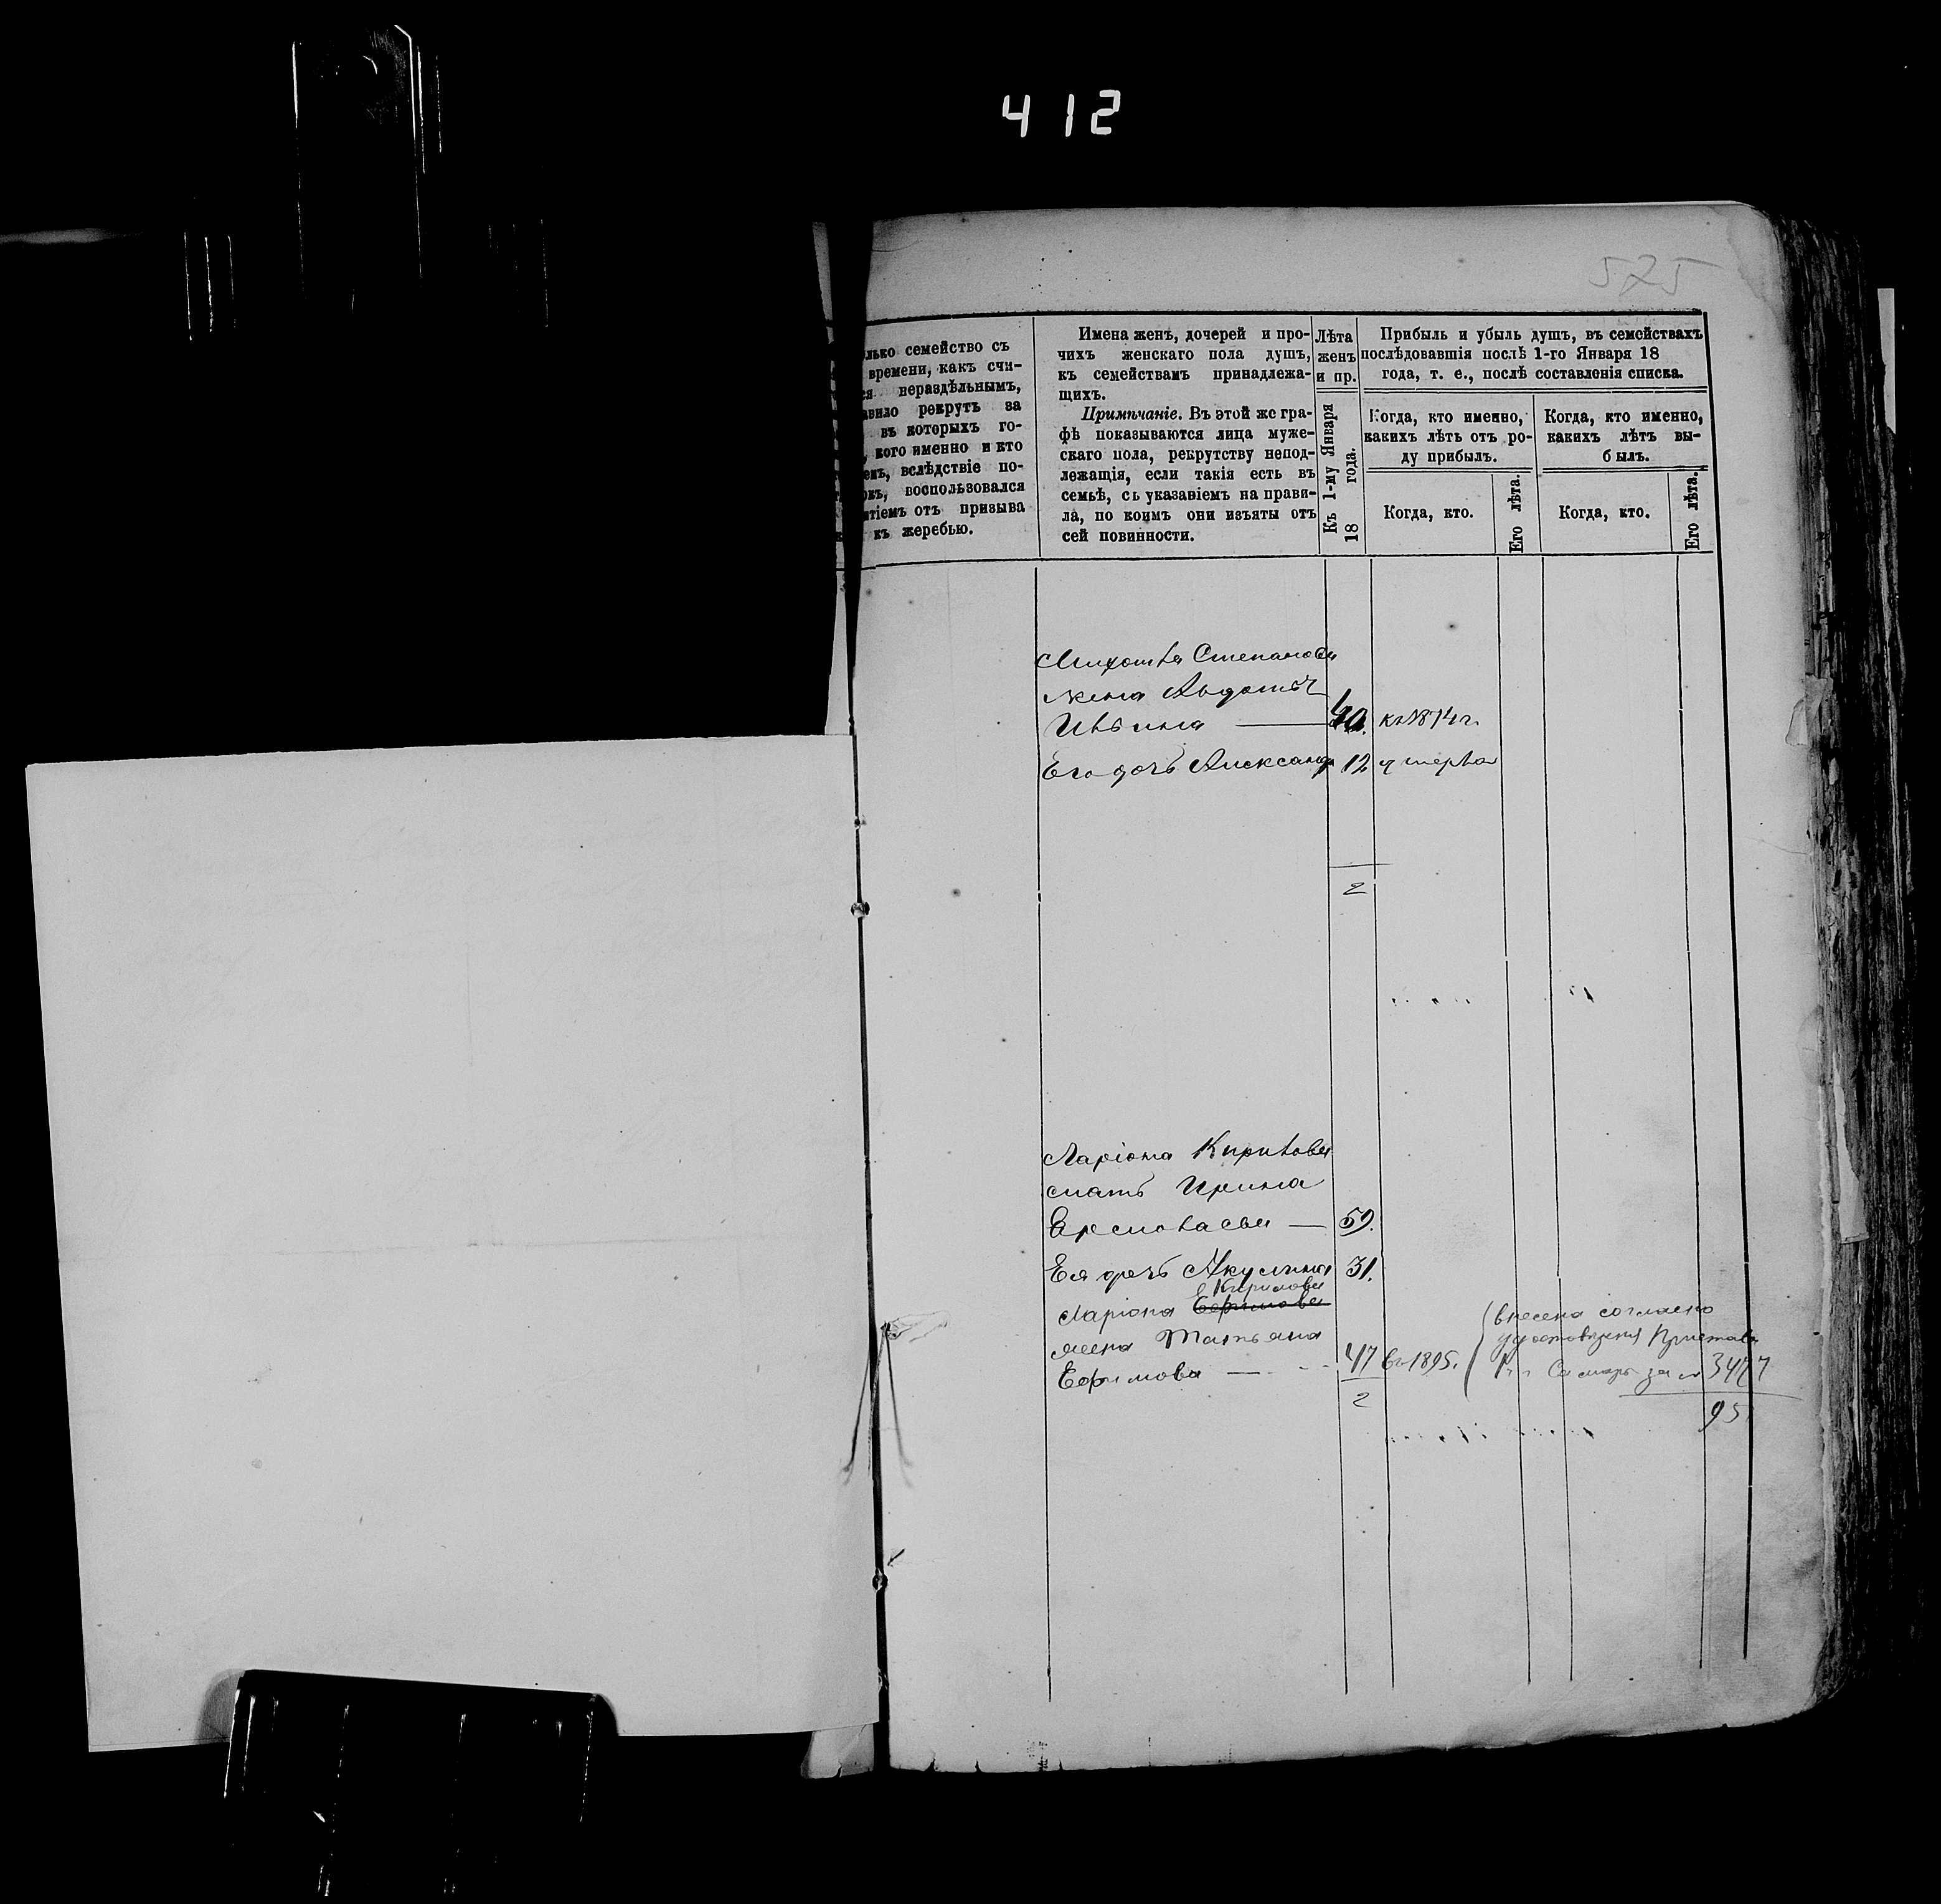 412
525
семейство съ
времени, какъ счи-
нераздѣльнымъ,
рекрутъ за
въ которыхъ го-
кого именно и кто
вслѣдствіе по-
воспользовался
отъ призыва
къ жеребью.
Имена женъ, дочерей и про-
чихъ женскаго пола душъ,
къ семействамъ принадлежа-
щихъ.
Примѣчаніе. Въ этой же гра-
фѣ показываются лица муже-
скаго пола, рекрутству непод-
лежащія, если такія есть въ
семьѣ, съ указаніемъ на прави-
ла, по коимъ они изъяты отъ
сей повинности.
Лѣта
женъ
и пр.
Къ 1-му Января
18 года.
Прибыль и убыль душъ, въ семействахъ
послѣдовавшія послѣ 1-го Января 18
года, т. е., послѣ составленія списка.
Когда, кто именно,
какихъ лѣтъ отъ ро-
ду прибылъ.
Когда, кто именно,
какихъ лѣтъ вы-
былъ.
Когда, кто.
Его лѣта.
Когда, кто.
Его лѣта.
Степанова
жена Авдотья
40.
Его дочь Александр 12
2
Ларіона
мать Ирина
59.
Ея дочь Акулина 31.
Кирилова
Ларіона Ефимова
жена Татьяна
Ефимова 47 въ 1895.
внесена согласно
за № 3477
95
2